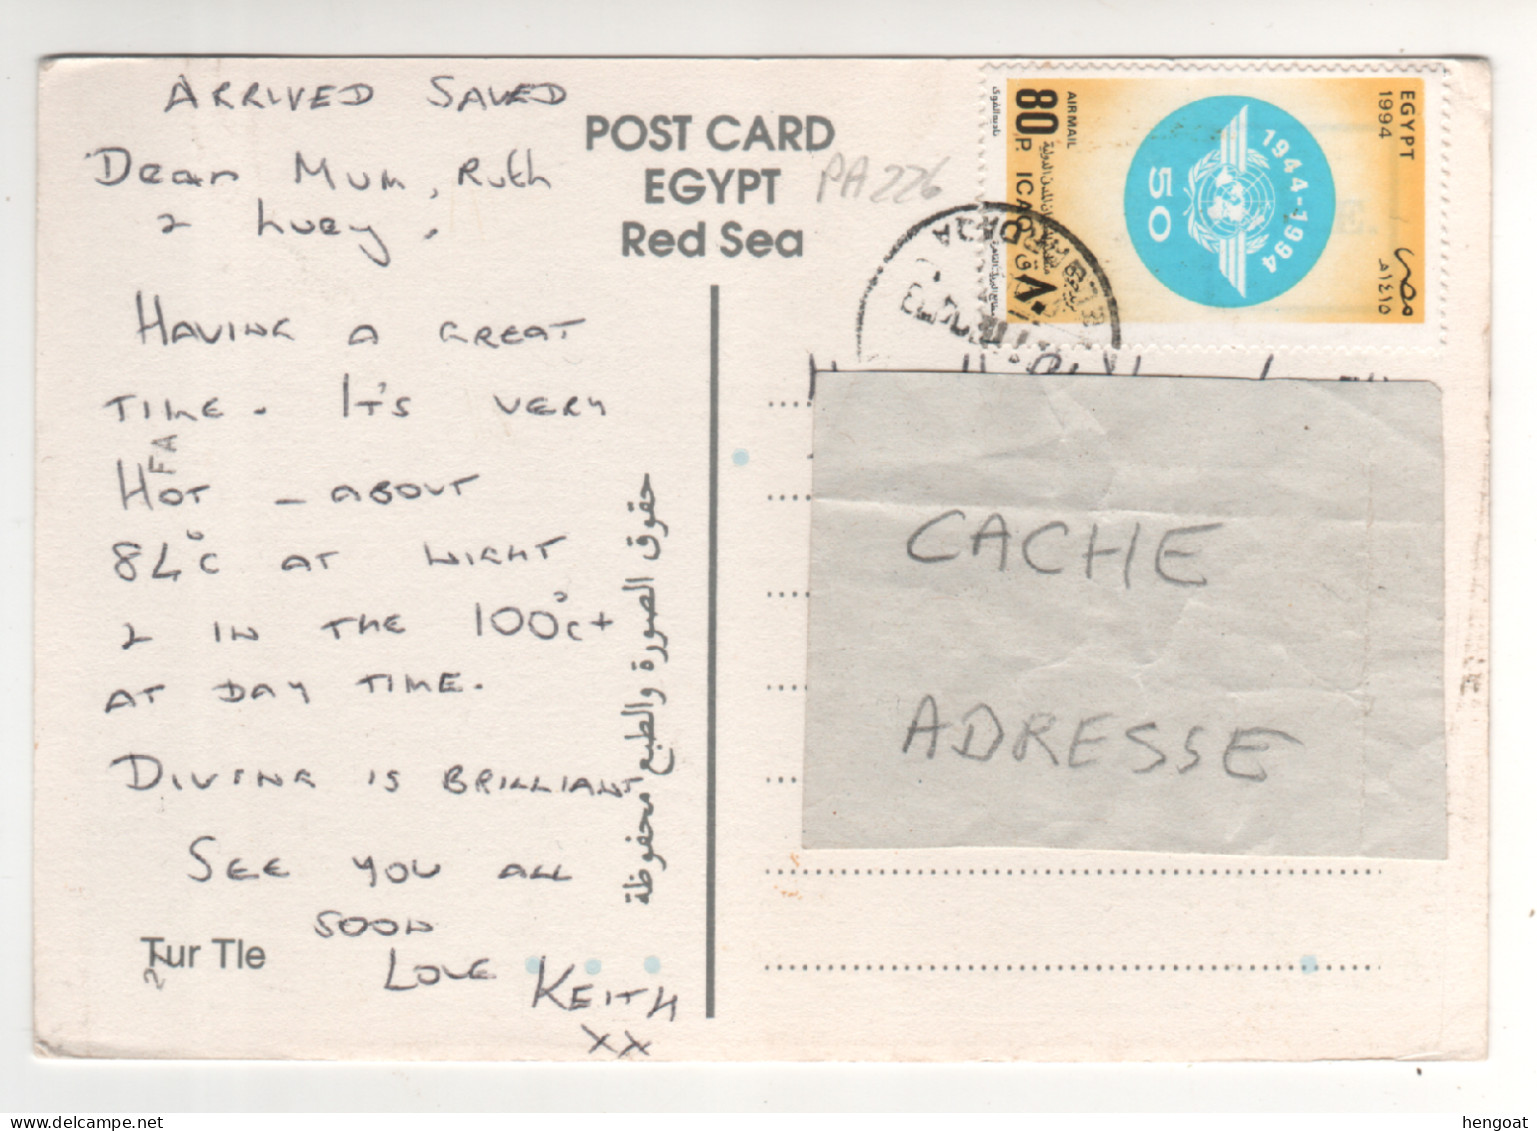 ARRIVED SAVED
Dear Mum, Ruth
& Lucy.
HAVING A GREAT
TIME. IT'S VERY
HOT - ABOUT
84°C AT NIGHT
& IN THE 100°C+
AT DAY TIME.
DIVING IS BRILLIANT
SEE YOU ALL
SOON
LOVE KEITH
XX
Tur Tle
FA
POST CARD
EGYPT
Red Sea
PA 226
حقوق الصورة والطبع محفوظة
EGYPT
1994
مصر
١٤١٥هـ
1944-1994
50
AIRMAIL
80 P.
ICAO
CACHE
ADRESSE
hengoat